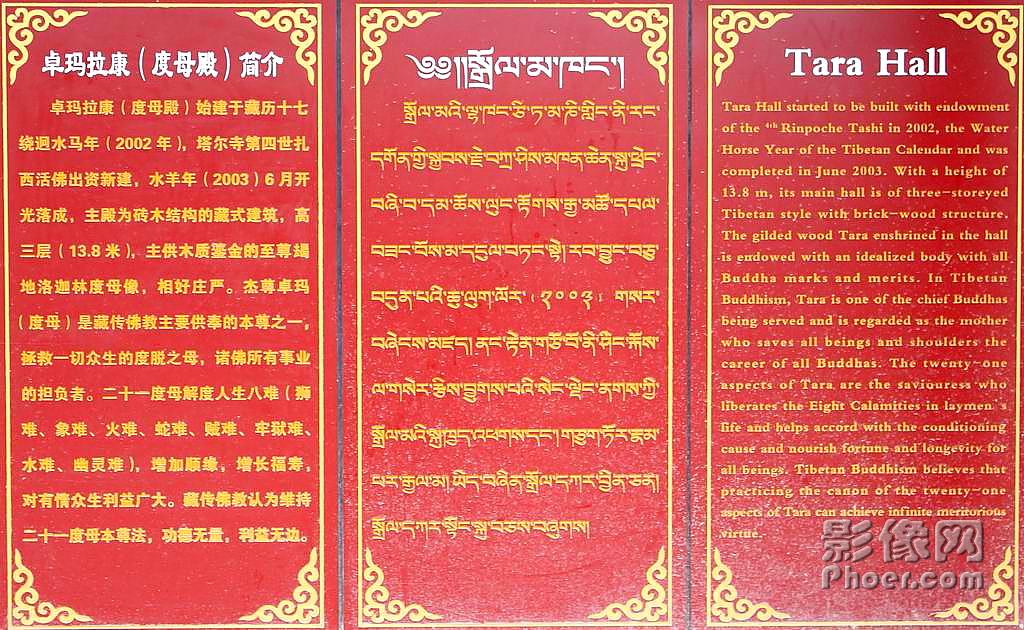 卓玛拉康（度母殿）简介
卓玛拉康（度母殿）始建于藏历十七
绕迥水马年（2002年），塔尔寺第四世扎
西活佛出资新建，水羊年（2003）6月开
光落成，主殿为砖木结构的藏式建筑，高
三层（13.8米），主供木质鎏金的至尊竭
地洛迦林度母像，相好庄严。杰尊卓玛
（度母）是藏传佛教主要供奉的本尊之一，
拯救一切众生的度脱之母，诸佛所有事业
的担负者。二十一度母解度人生八难（狮
难、象难、火难、蛇难、贼难、牢狱难、
水难、幽灵难），增加顺缘，增长福寿，
对有情众生利益广大。藏传佛教认为维持
二十一度母本尊法，功德无量，利益无边。
༄༅།།སྒྲོལ་མ་ཁང་།
སྒྲོལ་མའི་ལྷ་ཁང་ཙི་ཏ་མ་ཎི་གླིང་ནི་རང་
དགོན་གྱི་སྐྱབས་རྗེ་བཀྲ་ཤིས་མཁན་ཆེན་སྐུ་ཕྲེང་
བཞི་བ་དམ་ཆོས་ལུང་རྟོགས་རྒྱ་མཚོ་དཔལ་
བཟང་པོས་མ་དངུལ་བཏང་སྟེ། རབ་བྱུང་བཅུ་
བདུན་པའི་ཆུ་ལུག་ལོར་（༢༠༠༣） གསར་
བཞེངས་མཛད། ནང་རྟེན་གཙོ་བོ་ནི་ཤིང་རྐོས་
ལ་གསེར་རྩིས་བྱུགས་པའི་སེང་ལྡེང་ནགས་ཀྱི་
སྒྲོལ་མའི་སྐུ་ཁྱད་འཕགས་དང་། གཙུག་ཏོར་རྣམ་
པར་རྒྱལ་མ། ཡིད་བཞིན་སྒྲོལ་དཀར་བྱིན་ཅན།
སྒྲོལ་དཀར་སྟོང་སྐུ་བཅས་བཞུགས།
Tara Hall
Tara Hall started to be built with endowment
of the 4th Rinpoche Tashi in 2002, the Water
Horse Year of the Tibetan Caleudar and was
completed in June 2003. With a height of
13.8 m, its main hall is of three-storeyed
Tibetan style with brick-wood structure.
The gilded wood Tara enshrined in the hall
is endowed with an idealized body with all
Buddha marks and merits. In Tibetan
Buddhism, Tara is one of the chief Buddhas
being served and is regarded as the mother
who saves all beings and shoulders the
career of all Buddhas. The twenty-one
aspects of Tara are the saviouress who
liberates the Eight Calamities in laymen's
life and helps accord with the conditioning
cause and nourish fortune and longevity for
all beings. Tibetan Buddhism believes that
practicing the canon of the twenty-one
aspects of Tara can achieve infinite meritorious
virtue.
影像网
Phoer.com